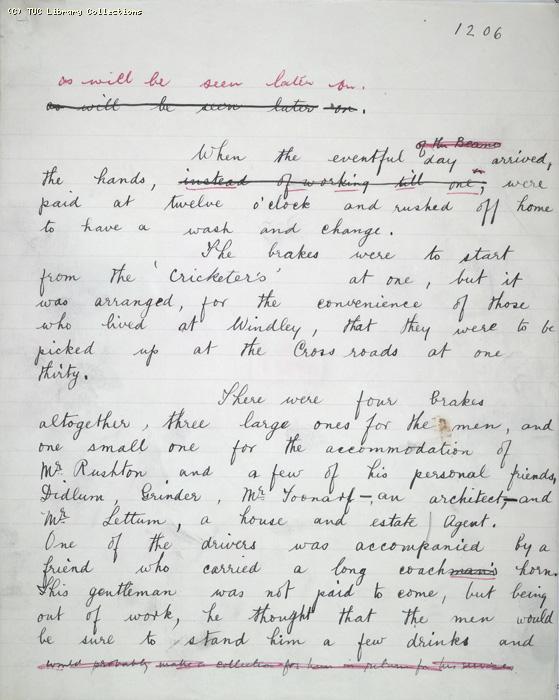 (C) TUC Library Collections
1206
as will be seen later on.
as will be seen later on.
of the Beano
When the eventful day arrived,
the hands, instead of working till one, were
paid at twelve o'clock and rushed off home
to have a wash and change.
The brakes were to start
from the 'Cricketer's' at one, but it
was arranged, for the convenience of those
who lived at Windley, that they were to be
picked up at the Cross roads at one
thirty.
There were four brakes
altogether, three large ones for the men, and
one small one for the accommodation of
Mr Rushton and a few of his personal friends,
Didlum, Grinder, Mr Toonarf - an architect, - and
Mr Lettum, a house and estate Agent.
One of the drivers was accompanied by a
friend who carried a long coachman's horn.
This gentleman was not paid to come, but being
out of work, he thought that the men would
be sure to stand him a few drinks and
would probably make a collection for him in return for his services.